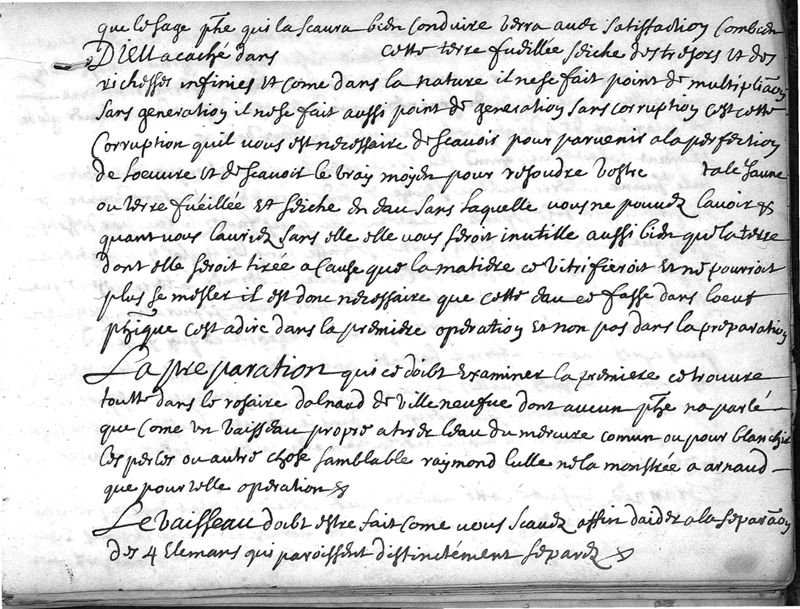 que le sage phe qui la scaura bien conduire verra avec satisfaction combien
Dieu a caché dans cette terre fueillée seiche des tresors et des
richesses infinies et come dans la nature il ne se fait point de multipliaōn
sans generation il ne se fait aussi point de generation sans corruption cest cette
corruption quil vous est necessaire de scavoir pour parvenir a la perfection
de loeuvre et de scavoir le vray moyen pour resoudre vostre talc jaune
ou terre fueillée et seiche en eau sans laquelle vous ne pouvez lavoir &
quant vous lauriez sans elle elle vous seroit inutille aussi bien que la terre
dont elle seroit tirée a cause que la matiere ce vitrifieroit et ne pouroit
plus se mesler il est donc necessaire que cette eau ce fasse dans loeuf
phique cest a dire dans la premiere operation et non pas dans la preparation
La preparation qui ce doibt examiner la premiere ce trouve
toutte dans le rosaire dalnaud de villeneufue dont aucun phe na parlé
que come un vaisseau propre a tirer leau du mercure comun ou pour blanchir
les perles ou autre chose samblable raymond lulle ne la monstrée a arnaud
que pour telle operation
Le vaisseau doibt estre fait come vous scavez affin daider a la separaōn
des 4 elemans qui paroissent distinctement separez